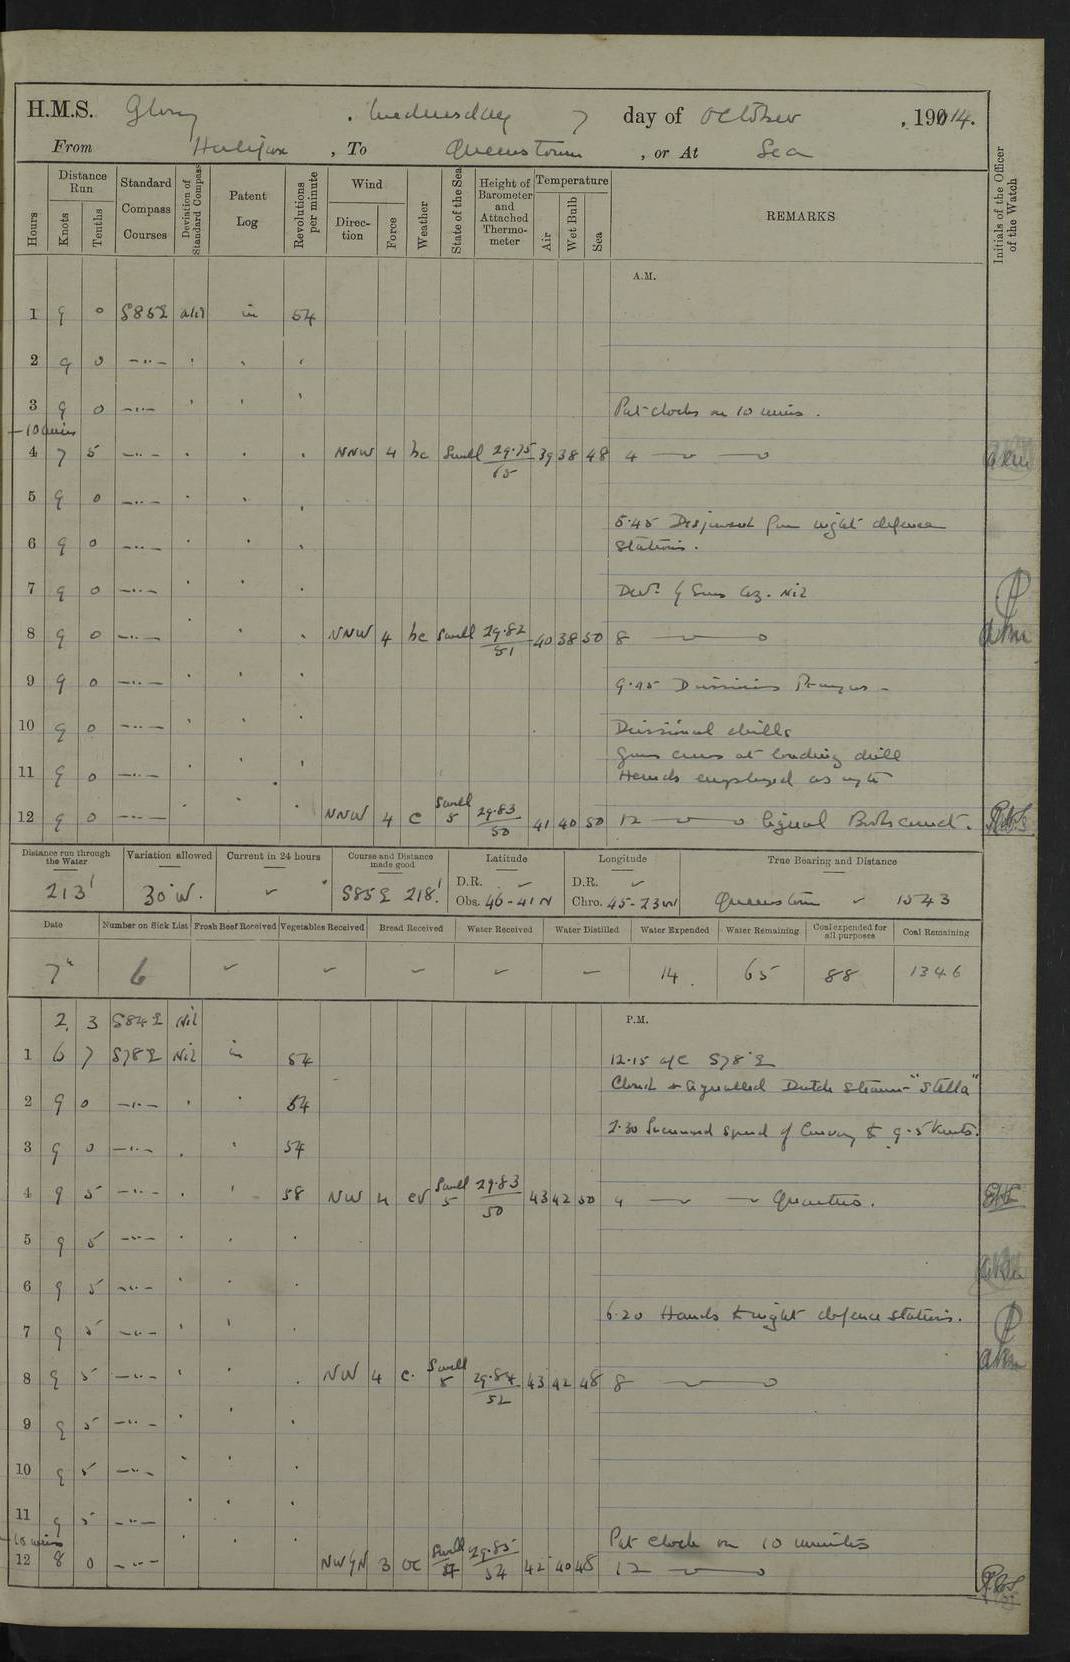 H.M.S. Glory , Wednesday 7 day of October , 1914.
From Halifax , To Queenstown , or At Sea
Hours Distance Run Knots Tenths Standard Compass Courses Deviation of Standard Compass Patent Log Revolutions per minute Wind Direction Force Weather State of the Sea Height of Barometer and Attached Thermometer Temperature Air Wet Bulb Sea REMARKS Initials of the Officer of the Watch
A.M.
1 9 0 S85E Nil in 54
2 9 0 —··—
3 9 0 —··— Put clocks on 10 mins.
—10 mins
4 7 5 —··— NNW 4 bc Swell 29.75/65 39 38 48 4
5 9 0 —··—
5.45 Dispersed from night defence
6 9 0 —··— Stations.
7 9 0 —··— Devn. Nil
8 9 0 —··— NNW 4 bc Swell 29.82/51 40 38 50 8
9 9 0 —··— 9.45 Divisions Prayers
10 9 0 —··— Divisional drills
Guns crews at loading drill
11 9 0 —··— Hands employed as
12 9 0 —··— NNW 4 c Swell 5 29.83/50 41 40 50 12
Distance run through the Water Variation allowed Current in 24 hours Course and Distance made good Latitude Longitude True Bearing and Distance
213' 30°W. S85E 218' D.R. Obs. 46-41N D.R. Chro. 45-23W Queenstown 1543
Date Number on Sick List Fresh Beef Received Vegetables Received Bread Received Water Received Water Distilled Water Expended Water Remaining Coal expended for all purposes Coal Remaining
7th 6 14 65 88 1346
2 3 S84E Nil P.M.
1 6 7 S78E Nil in 54 12.15 a/c S78°E
Closed & signalled Dutch Steamer "Stella"
2 9 0 —··— 54
Increased speed of Convoy to 9.5 Knots.
3 9 0 —··— 54
4 9 5 —··— 58 NW 4 cv Swell 5 29.83/50 43 42 50 4 Quarters.
5 9 5 —··—
6 9 5 —··—
6.20 Hands to night defence stations.
7 9 5 —··—
8 9 5 —··— NW 4 c. Swell 5 29.84/52 43 42 48 8
9 9 5 —··—
10 9 5 —··—
11 9 5 —··—
Put clock on 10 minutes
12 8 0 —··— NW by N 3 oc Swell 29.85/54 42 40 48 12